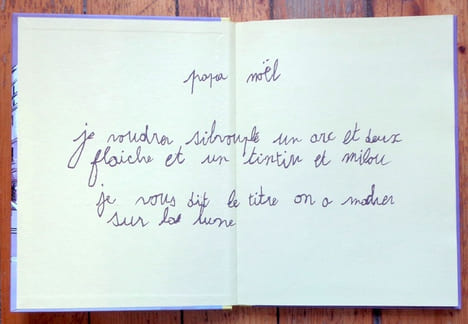 papa noël
je voudrer silvouplé un arc et deux
flaiche et un tintin et milou
je vous dit le titre on a madrer
sur la lune